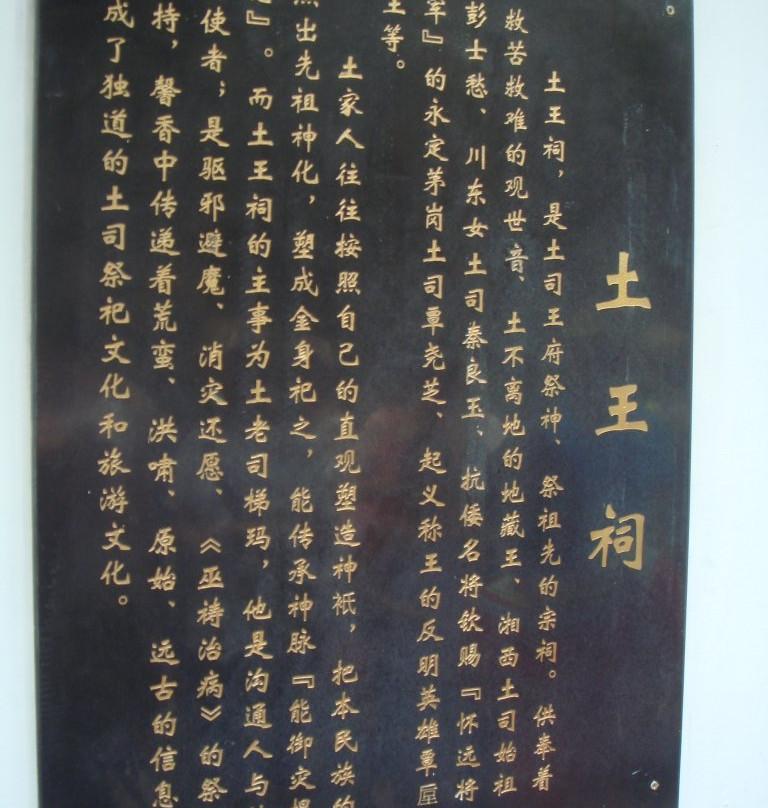 土王祠
土王祠，是土司王府祭神、祭祖先的宗祠。供奉着
救苦救难的观世音、土不离地的地藏王、湘西土司始祖
彭士愁、川东女土司秦良玉、抗倭名将钦赐『怀远将
军』的永定茅岗土司覃尧芝、起义称王的反明英雄覃垕
王等。
土家人往往按照自己的直观塑造神祇，把本民族的
出先祖神化，塑成金身祀之，能传承神脉『能御灾
』。而土王祠的主事为土老司梯玛，他是沟通人与
使者；是驱邪避魔、消灾还愿、《巫祷治病》的祭
持，馨香中传递着荒蛮、洪啸、原始、远古的信息
成了独道的土司祭祀文化和旅游文化。